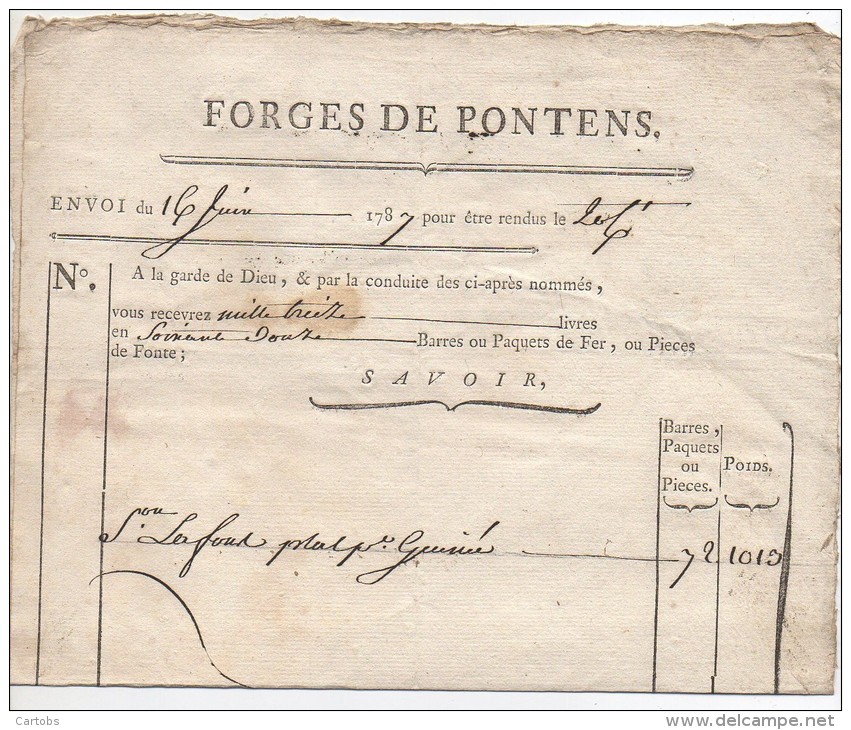 FORGES DE PONTENS.
ENVOI du 16 Juin 1787 pour être rendus le
N°. A la garde de Dieu, & par la conduite des ci-après nommés,
vous recevrez mille treize livres
en Soixante Douze Barres ou Paquets de Fer, ou Pieces
de Fonte;
SAVOIR,
Barres,
Paquets
ou
Pieces.
POIDS.
Lafont plat pr. Guinée 72 1013
Cartobs
www.delcampe.net